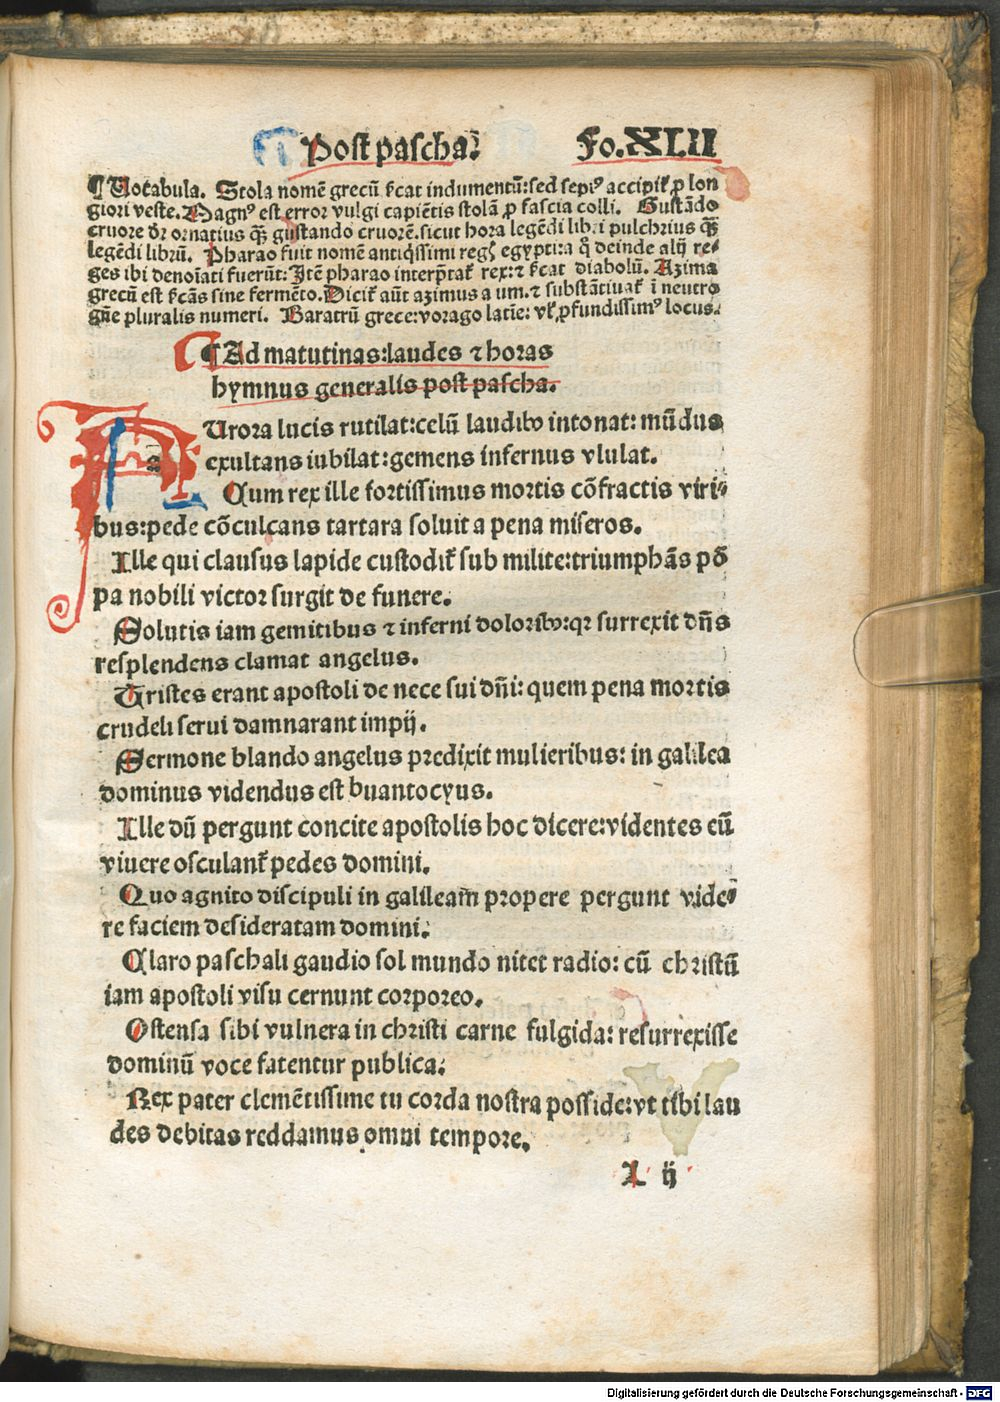 Post pascha. Fo.XLII
¶ Vocabula. Stola nomē grecū ſicat indumentū: sed sepiꝰ accipit̄ ꝓ lon
giori veste. Magnꝰ est error vulgi capiētis stolā ꝓ fascia colli. Gustādo
cruore dr̄ ornatius qꝫ gustando cruorē. sicut hora legēdi libri pulchrius qꝫ
legēdi librū. Pharao fuit nomē antiqͥssimi regꝭ egypti: a qͦ deinde alij re-
ges ibi denoīati fuerūt: Itē pharao interp̄tat̄ rex: ⁊ ſicat diabolū. Azima
grecū est ſicās sine fermēto. Dicit̄ aūt azimus a um. ⁊ substātiuat̄ ī neutro
gn̄e pluralis numeri. Baratrū grece: vorago latīe: vl̄ ꝓfundissimꝰ locus.
¶ Ad matutinas: laudes ⁊ horas
hymnus generalis post pascha.
aUrora lucis rutilat: celū laudibꝰ intonat: mūdus
exultans iubilat: gemens infernus vlulat.
Cum rex ille fortissimus mortis cōfractis viri-
bus: pede cōculcans tartara soluit a pena miseros.
Ille qui clausus lapide custodit̄ sub milite: triumphās pō
pa nobili victor surgit de funere.
Solutis iam gemitibus ⁊ inferni doloribꝰ: qꝛ surrexit dn̄s
resplendens clamat angelus.
Tristes erant apostoli de nece sui dn̄i: quem pena mortis
crudeli serui damnarant impij.
Sermone blando angelus predixit mulieribus: in galilea
dominus videndus est buantocyus.
Ille dū pergunt concite apostolis hoc dicere: videntes eū
viuere osculant̄ pedes domini.
Quo agnito discipuli in galileam̄ propere pergunt vide-
re faciem desideratam domini.
Claro paschali gaudio sol mundo nitet radio: cū christū
iam apostoli visu cernunt corporeo.
Ostensa sibi vulnera in christi carne fulgida: resurrexisse
dominū voce fatentur publica.
Rex pater clemētissime tu corda nostra posside: vt tibi lau
des debitas reddamus omni tempore.
L ij
Digitalisierung gefördert durch die Deutsche Forschungsgemeinschaft - DFG